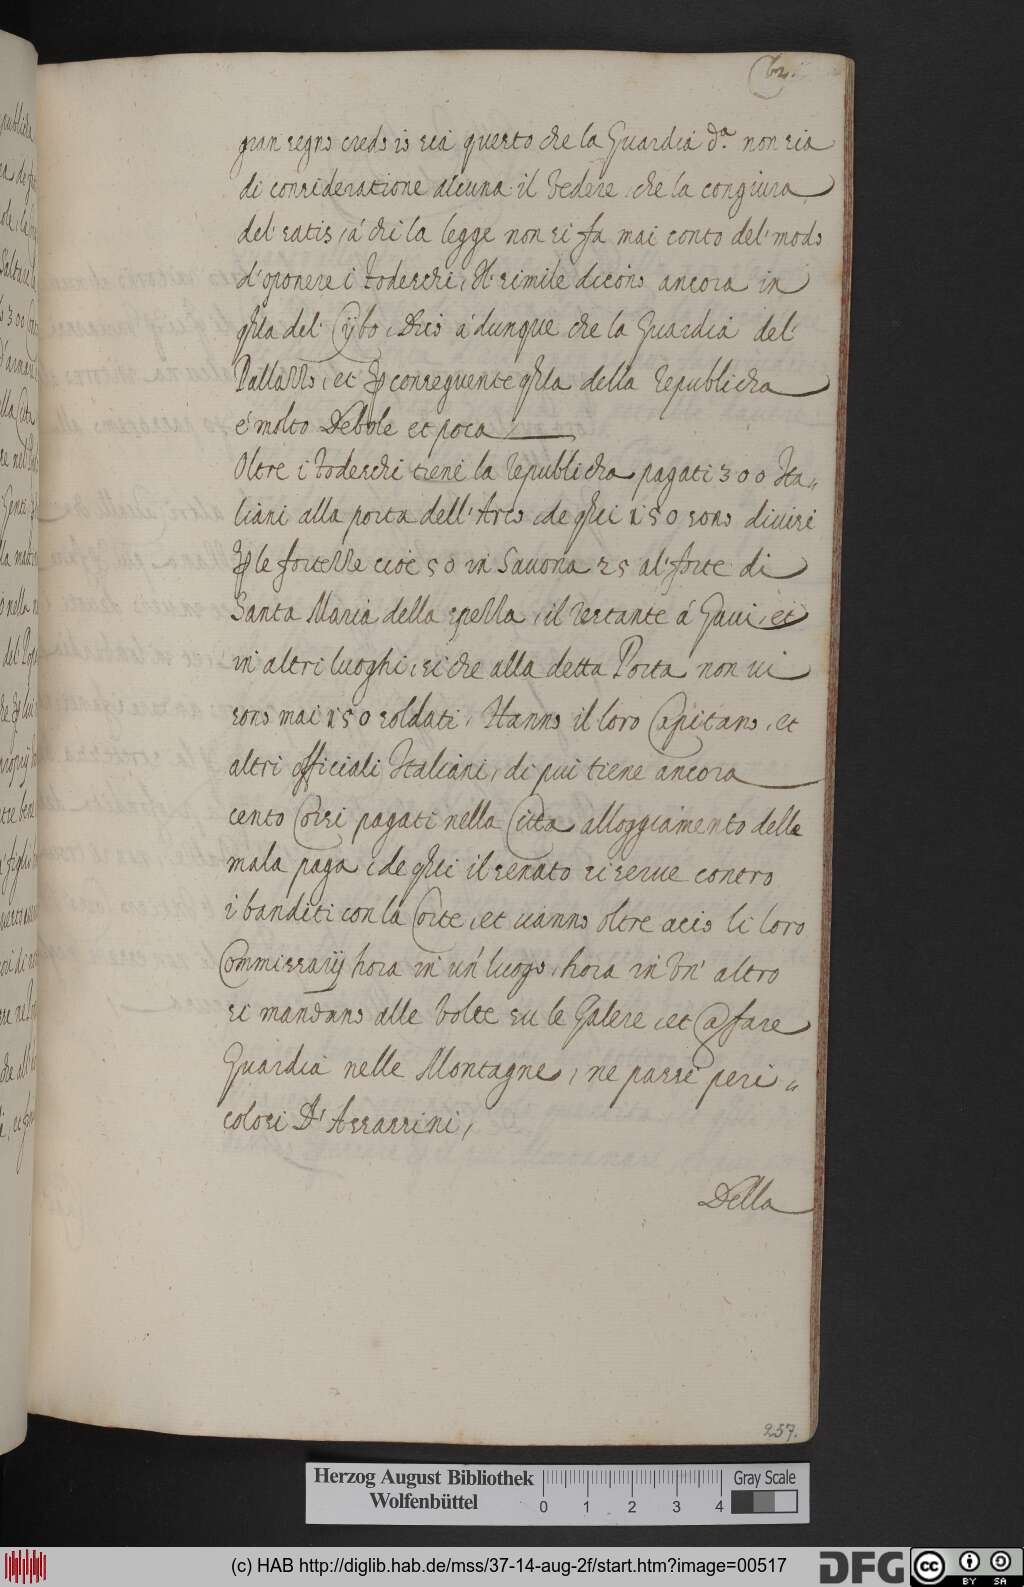 62.
gran segno credo io sia questo che la Guardia d.ª non sia
di consideratione alcuna il vedere che la congiura
del' satis, á chi la legge non si fa mai conto del' modo
d'oponere i Todeschi, Il simile dicono ancora in
q̃lla del' Cybo, Dico a'dunque che la Guardia del'
Pallazzo, et ꝑ conseguente q̃lla della Republicha
é molto Debole et poca
Oltre i Todeschi tiene la Republicha pagati 300 Ita„
liani alla porta dell'Arco, de q̃lli 150 sono divisi
ꝑ le fortezze cioé 50 in Savona 25 al'forte di
Santa Maria della spezza, il restante á Gavi, et
in altri luoghi, si che alla detta Porta non vi
sono mai 150 soldati, Hanno il loro Capitano, et
altri officiali Italiani, di piu tiene ancora
cento Corsi pagati nella Citta alloggiamento delle
mala paga, de q̃lli il senato si serve contro
i banditi con la Corte, et vanno oltre acio li loro
Commissarij hora in un'luogo, hora in vn' altro
si mandano alle volte su le Galere, et a fare
Guardia nelle Montagne, ne passi peri„
colosi D'Assassini,
Della
257.
Herzog August Bibliothek
Wolfenbüttel
0 1 2 3 4
Gray Scale
(c) HAB http://diglib.hab.de/mss/37-14-aug-2f/start.htm?image=00517
DFG
cc BY SA